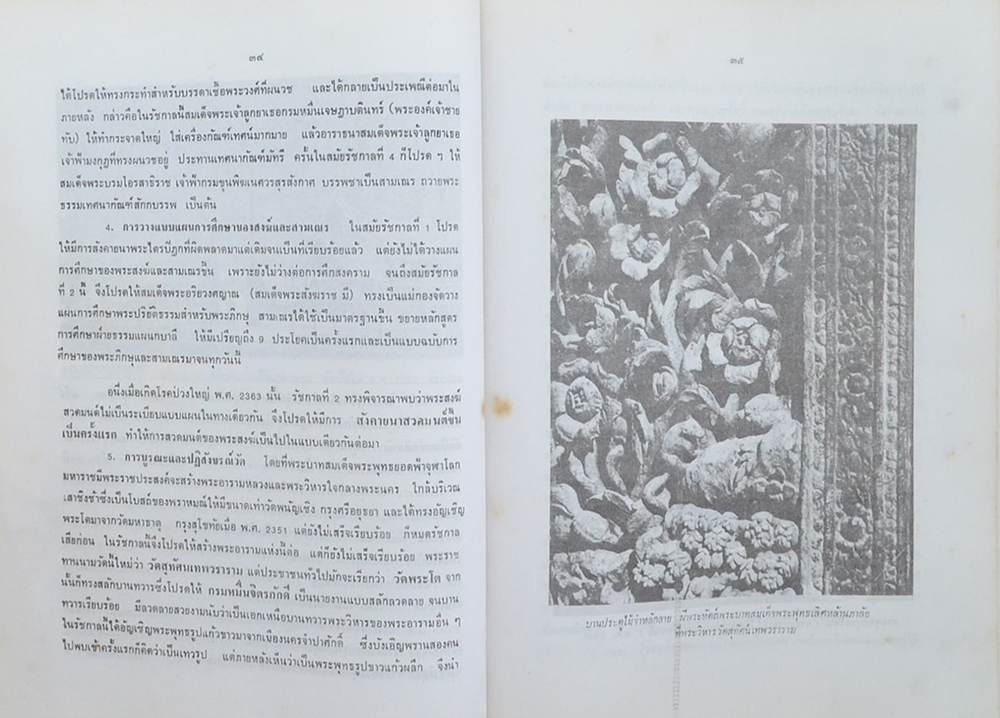 ๓๔
ได้โปรดให้ทรงกระทำสำหรับบรรดาเชื้อพระวงศ์ที่ผนวช และได้กลายเป็นประเพณีต่อมาใน
ภายหลัง กล่าวคือในรัชกาลนี้สมเด็จพระเจ้าลูกยาเธอกรมหมื่นเจษฎาบดินทร์ (พระองค์เจ้าชาย
ทับ) ให้ทำกระจาดใหญ่ ใส่เครื่องกัณฑ์เทศน์มากมาย แล้วอาราธนาสมเด็จพระเจ้าลูกยาเธอ
เจ้าฟ้ามงกุฎที่ทรงผนวชอยู่ ประทานเทศนากัณฑ์มัทรี ครั้นในสมัยรัชกาลที่ 4 ก็โปรด ฯ ให้
สมเด็จพระบรมโอรสาธิราช เจ้าฟ้ากรมขุนพิฆเนศวรสุรสังกาศ บรรพชาเป็นสามเณร ถวายพระ
ธรรมเทศนากัณฑ์สักกบรรพ เป็นต้น
4. การวางแบบแผนการศึกษาของสงฆ์และสามเณร ในสมัยรัชกาลที่ 1 โปรด
ให้มีการสังคายนาพระไตรปิฎกที่ผิดพลาดมาแต่เดิมจนเป็นที่เรียบร้อยแล้ว แต่ยังไม่ได้วางแผน
การศึกษาของพระสงฆ์และสามเณรขึ้น เพราะยังไม่ว่างต่อการศึกสงคราม จนถึงสมัยรัชกาล
ที่ 2 นี้ จึงโปรดให้สมเด็จพระอริยวงศญาณ (สมเด็จพระสังฆราช มี) ทรงเป็นแม่กองจัดวาง
แผนการศึกษาพระปริยัติธรรมสำหรับพระภิกษุ สามเณรได้ใช้เป็นมาตรฐานขึ้น ขยายหลักสูตร
การศึกษาฝ่ายธรรมแผนกบาลี ให้มีเปรียญถึง 9 ประโยคเป็นครั้งแรกและเป็นแบบฉบับการ
ศึกษาของพระภิกษุและสามเณรมาจนทุกวันนี้
อนึ่งเมื่อเกิดโรคป่วงใหญ่ พ.ศ. 2363 นั้น รัชกาลที่ 2 ทรงพิจารณาพบว่าพระสงฆ์
สวดมนต์ไม่เป็นระเบียบแบบแผนในทางเดียวกัน จึงโปรดให้มีการ สังคายนาสวดมนต์ขึ้น
เป็นครั้งแรก ทำให้การสวดมนต์ของพระสงฆ์เป็นไปในแบบเดียวกันต่อมา
5. การบูรณะและปฏิสังขรณ์วัด โดยที่พระบาทสมเด็จพระพุทธยอดฟ้าจุฬาโลก
มหาราชมีพระราชประสงค์จะสร้างพระอารามหลวงและพระวิหารใจกลางพระนคร ใกล้บริเวณ
เสาชิงช้าซึ่งเป็นโบสถ์ของพราหมณ์ให้มีขนาดเท่าวัดพนัญเชิง กรุงศรีอยุธยา และได้ทรงอัญเชิญ
พระโตมาจากวัดมหาธาตุ กรุงสุโขทัยเมื่อ พ.ศ. 2351 แต่ยังไม่เสร็จเรียบร้อย ก็หมดรัชกาล
เสียก่อน ในรัชกาลนี้จึงโปรดให้สร้างพระอารามแห่งนี้ต่อ แต่ก็ยังไม่เสร็จเรียบร้อย พระราช
ทานนามวัดนี้ใหม่ว่า วัดสุทัศนเทพวราราม แต่ประชาชนทั่วไปมักจะเรียกว่า วัดพระโต จาก
นั้นก็ทรงสลักบานทวารซึ่งโปรดให้ กรมหมื่นจิตรภักดี เป็นนายงานแบบสลักลวดลาย จนบาน
ทวารเรียบร้อย มีลวดลายสวยงามนับว่าเป็นเอกเหนือบานทวารพระวิหารของพระอารามอื่น ๆ
ในรัชกาลนี้ได้อัญเชิญพระพุทธรูปแก้วขาวมาจากเมืองนครจำปาศักดิ์ ซึ่งบังเอิญพรานสองคน
ไปพบเข้าครั้งแรกก็คิดว่าเป็นเทวรูป แต่ภายหลังเห็นว่าเป็นพระพุทธรูปขาวแก้วผลึก จึงนำ
๓๕
บานประตูไม้จำหลักลาย ฝีพระหัตถ์พระบาทสมเด็จพระพุทธเลิศหล้านภาลัย
ที่พระวิหารวัดสุทัศน์เทพวราราม